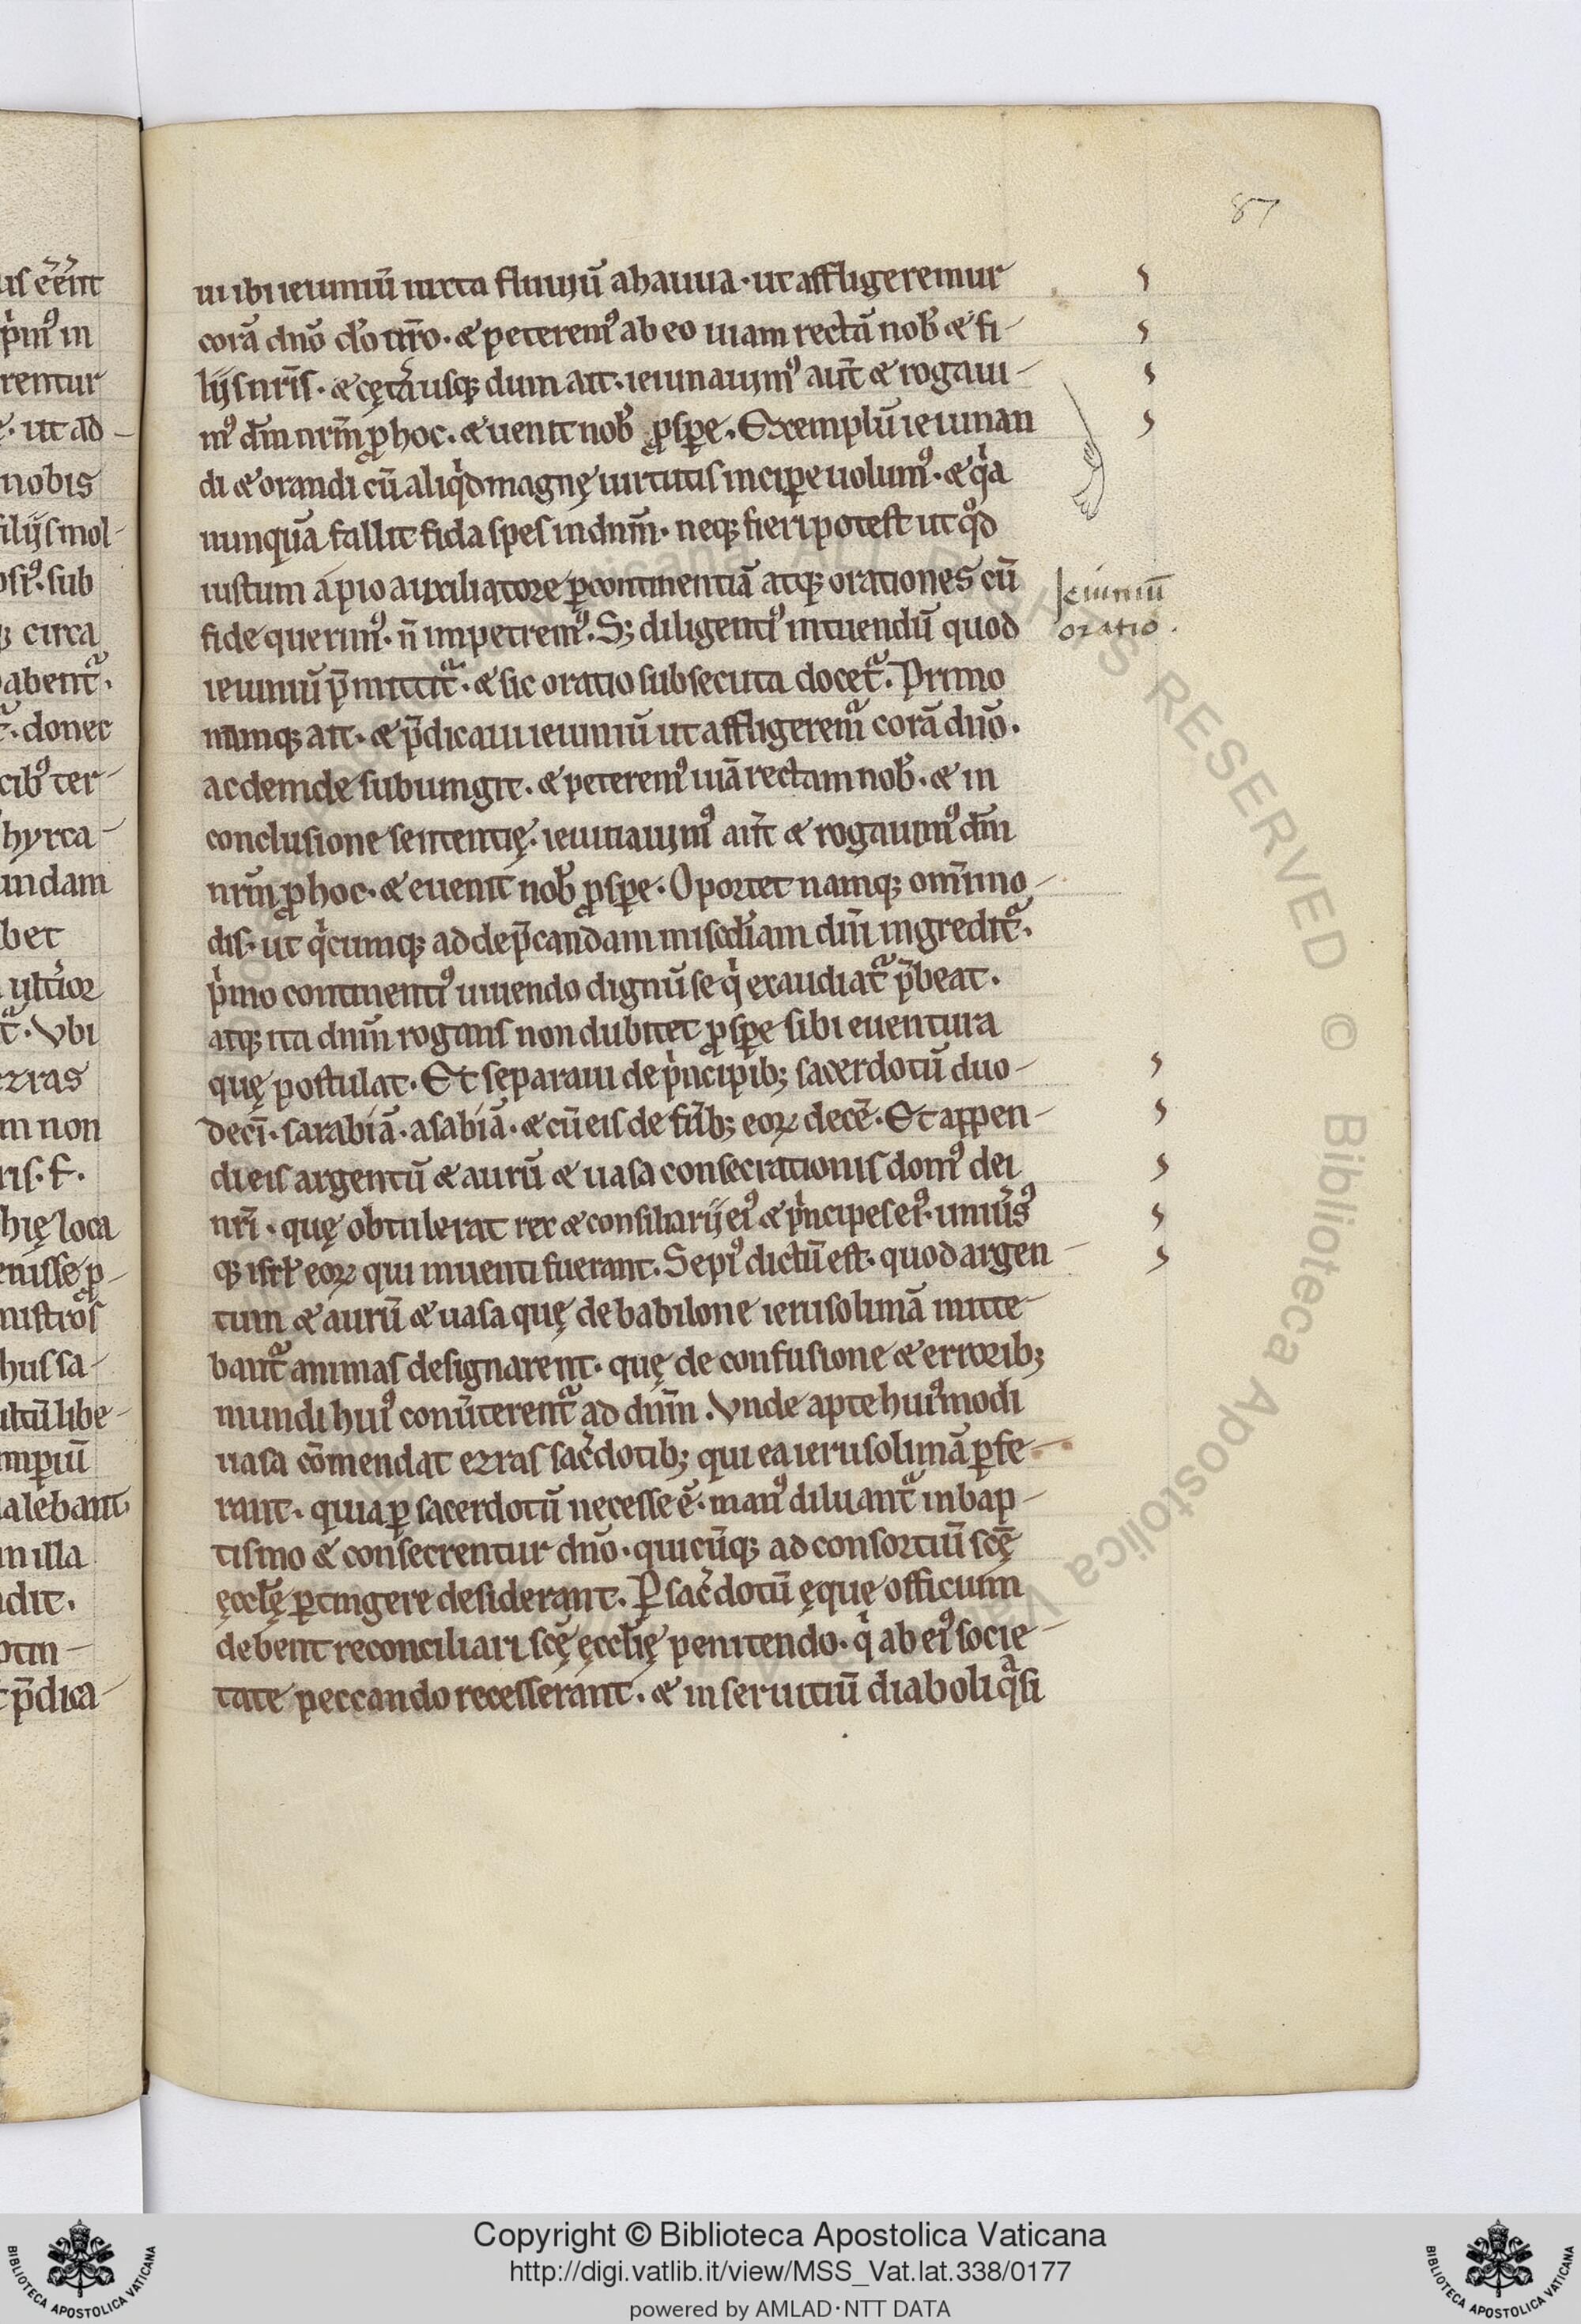 87
ui ibi ieiuniū iuxta fluuiū ahauua · ut affligeremur
corā dnō dō nr̄o · & peterem⁹ ab eo uiam rectā nob̄ & fi-
lijs nr̄is · & cęt̄a usq; dum ait · ieiunauim⁹ aut̄ & rogaui-
m⁹ dm̄ nrm̄ ꝓ hoc · & uenit nob̄ ꝓsꝑe · Exemplū ieiunan
di & orandi cū aliqͥd magnę uirtutis inciꝑe uolum⁹ · & qͥa
nunquā fallit fida spes in dnm̄ · neq; fieri potest ut qͦd
iustum a pio auxiliatore ꝑ continentiā atq; orationes cū
fide querim⁹ · n̄ impetrem⁹. S; diligenti⁹ intuendū quod
ieiuniū p̄mittit᷑ · & sic oratio subsecuta docet᷑. Primo
namq; ait · & p̄dicaui ieiuniū ut affligerem᷑ corā dnō ·
ac deinde subiungit · & peterem⁹ uiā rectam nob̄ · & in
conclusione sententię · ieiunauim⁹ aut̄ & rogauim⁹ dm̄
nrm̄ ꝓ hoc · & euenit nob̄ ꝓsꝑe · Oportet namq; om̄imo-
dis · ut qͥcumq; ad dep̄candam misc̄diam dn̄i ingredit᷑.
pͥmo continenti⁹ uiuendo dignū se qͥ exaudiat᷑ p̄beat ·
atq; ita dnm̄ rogans non dubitet ꝓsꝑe sibi euentura
quę postulat · Et separaui de pͥncipib; sacerdotū duo-
deci · sarabiā · asabiā · & cū eis de fr̄ib; eoꝝ decē · Et appen-
di eis argentū & aurū & uasa consecrationis dom⁹ dei
nr̄i · quę obtulerat rex & consiliarij ei⁹ & pͥncipes ei⁹ · uniūs⁹
q; isrl̄ eoꝝ qui inuenti fuerant. Sepi⁹ dictū est · quod argen-
tum & aurū & uasa quę de babilone ierusolimā mitte-
bant᷑ animas designarent · quę de confusione & errorib;
mundi hui⁹ conūterent᷑ ad dnm̄. Vnde apte hui⁹modi
uasa cōmendat ezras sac̄dotib; qui ea ierusolimā ꝑfe-
rant · quia ꝑ sacerdotū necesse ē · man⁹ diluant᷑ in bap-
tismo & consecrentur dnō · quicūq; ad consortiū scę̄
ęcclę̄ ꝑtingere desiderant. Ꝑ sac̄dotū ęque officium
debent reconciliari scę̄ ęccl̄ię penitendo · qͥ ab ei⁹ socie-
tate peccando recesserant · & in seruitiū diaboli qᷓsi
Ieiuniū
oratio.
p̄m⁹ in
rentur
· ut ad-
nobis
filijs mol-
· sub
circa
abent᷑.
· donec
cib⁹ ter-
hyrca-
undam
bet
· Vbi
ezras
m non
ris · f.
hię loca
enisse ꝓ-
nistros
hus sa-
ultū libe-
imperiū
alebant
in illa
dit.
otin-
p̄dica-
Copyright © Biblioteca Apostolica Vaticana
http://digi.vatlib.it/view/MSS_Vat.lat.338/0177
powered by AMLAD·NTT DATA